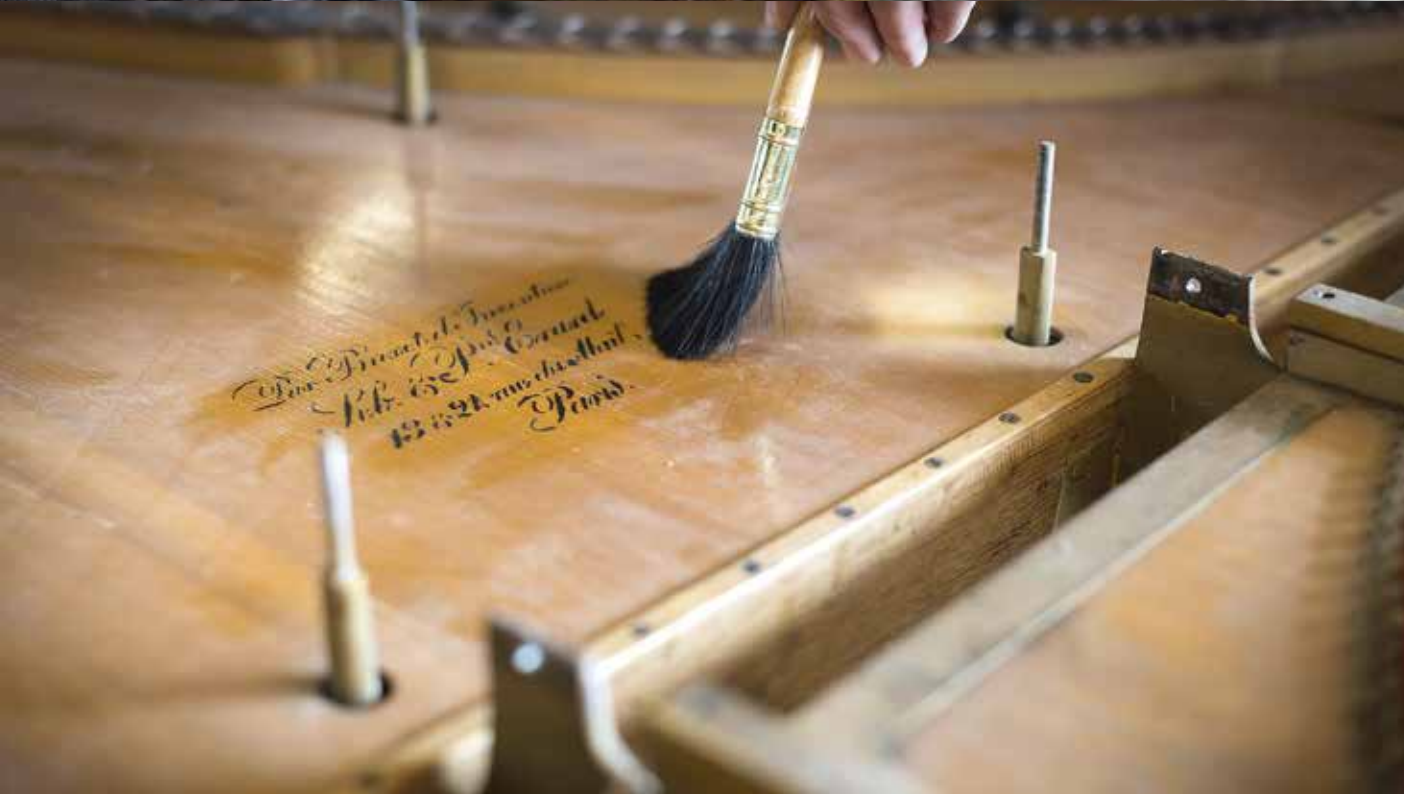 Par Brevet d'Invention
Séb. & P. Erard
13 & 21. rue du Mail.
Paris.